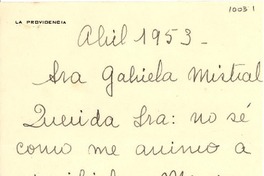 1003 1
LA PROVIDENCIA
Abril 1953-
Sra Gabriela Mistral
Querida Sra: no sé
como me animo a